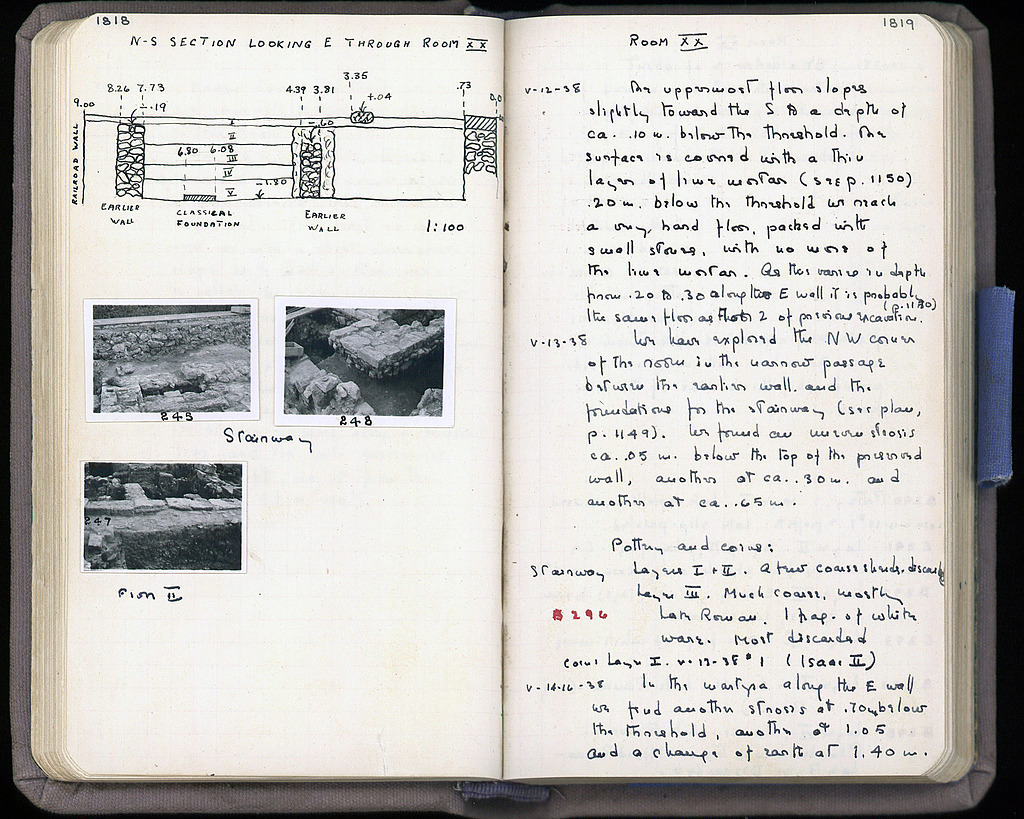 1818
N-S SECTION LOOKING E THROUGH ROOM XX
3.35
8.26 7.73
4.39 3.81
.73
0.0
9.00
-.19
+.04
-.60
I
II
6.80 6.08
III
IV
V
-1.80
RAILROAD WALL
EARLIER WALL
CLASSICAL FOUNDATION
EARLIER WALL
1:100
245
248
Stairway
247
Floor II
1819
ROOM XX
V-12-38 The uppermost floor slopes
slightly toward the S to a depth of
ca. .10 m. below the threshold. The
surface is covered with a thin
layer of lime mortar (see p. 1150)
.20 m. below the threshold we reach
a very hard floor, packed with
small stones, with no more of
the lime mortar. As this varies in depth
from .20 to .30 along the E wall it is probably
the same floor as that 2 of previous excavation.
(p. 1150)
V-13-38 We have explored the NW corner
of the room in the narrow passage
between the earlier wall and the
foundations for the stairway (see plan,
p. 1149). We found an uneven strosis
ca. .05 m. below the top of the preserved
wall, another at ca. .30 m. and
another at ca. .65 m.
Pottery and coins:
Stairway Layers I + II. A few coarse sherds, discarded
Layer III. Much coarse, mostly
B 296 Late Roman. 1 frag. of white
ware. Most discarded
Coins Layer I. V-12-38 #1 (Isaac II)
V-14-16-38 In the martyra along the E wall
we find another strosis at .70 m below
the threshold, another at 1.05
and a change of earth at 1.40 m.